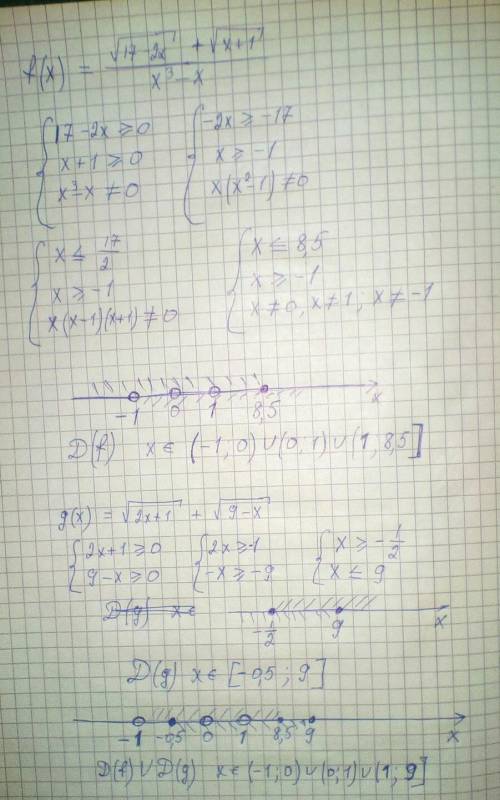 f(x) = (√(17-2x) + √(x+1)) / (x³-x)
{ 17-2x ≥ 0 { -2x ≥ -17
x+1 ≥ 0 x ≥ -1
x³-x ≠ 0 x(x²-1) ≠ 0
{ x ≤ 17/2 { x ≤ 8,5
x ≥ -1 x ≥ -1
x(x-1)(x+1) ≠ 0 x ≠ 0, x ≠ 1; x ≠ -1
-1 0 1 8,5 x
D(f) x ∈ (-1; 0) ∪ (0; 1) ∪ (1; 8,5]
g(x) = √(2x+1) + √(9-x)
{ 2x+1 ≥ 0 { 2x ≥ -1 { x ≥ -1/2
9-x ≥ 0 -x ≥ -9 x ≤ 9
D(g) x ∈ -1/2 9 x
D(g) x ∈ [-0,5; 9]
-1 -0,5 0 1 8,5 9 x
D(f) ∪ D(g) x ∈ (-1; 0) ∪ (0; 1) ∪ (1; 9]